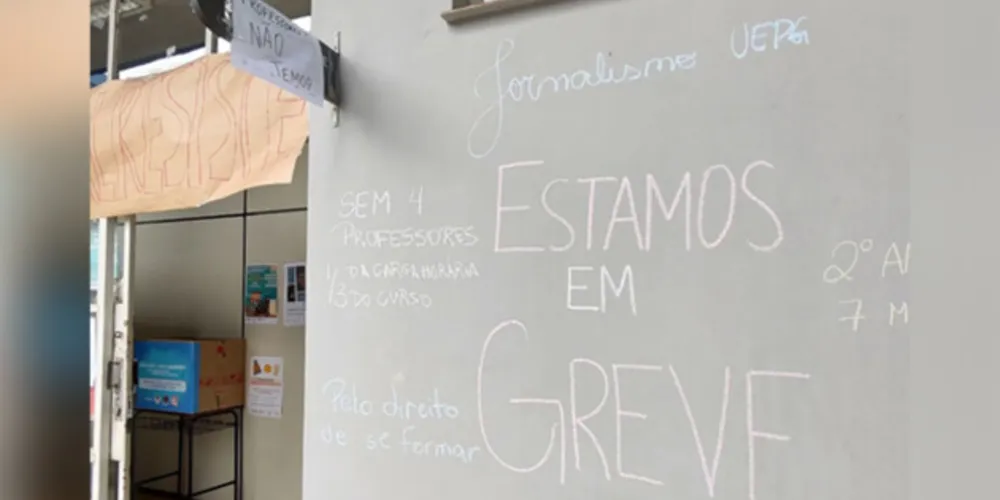 PROFESSORES
NÃO
TEMOS
Jornalismo UEPG
SEM 4
PROFESSORES
1/3 DA CARGA HORÁRIA
DO CURSO
ESTAMOS
EM
GREVE
2º A
7 M
Pelo direito
de se formar